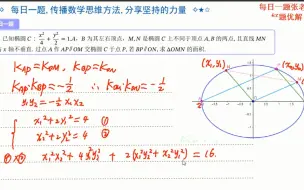 每日一题,传播数学思维方法,分享坚持的力量
每日一题张老
题优解
已知椭圆C: x²/4 + y²/2 = 1, A、B为其左右顶点, M、N是椭圆C上不同于顶点A,B的两点,且直线MN
与x轴不垂直, 过点A作AP∥OM交椭圆C于点P,若BP∥ON,求ΔOMN的面积.
K_AP = K_OM, K_BP = K_ON
K_AP·K_BP = -1/2 ∴ K_M·K_ON = -1/2
y₁y₂ = -1/2 x₁x₂
x₁²+2y₁² = 4 ①
x₂²+2y₂² = 4 ②
①×② x₁²x₂²+4y₁²y₂² + 2(x₁²y₂²+x₂²y₁²) = 16.
(x₂,y₂)
(x₁,y₁)